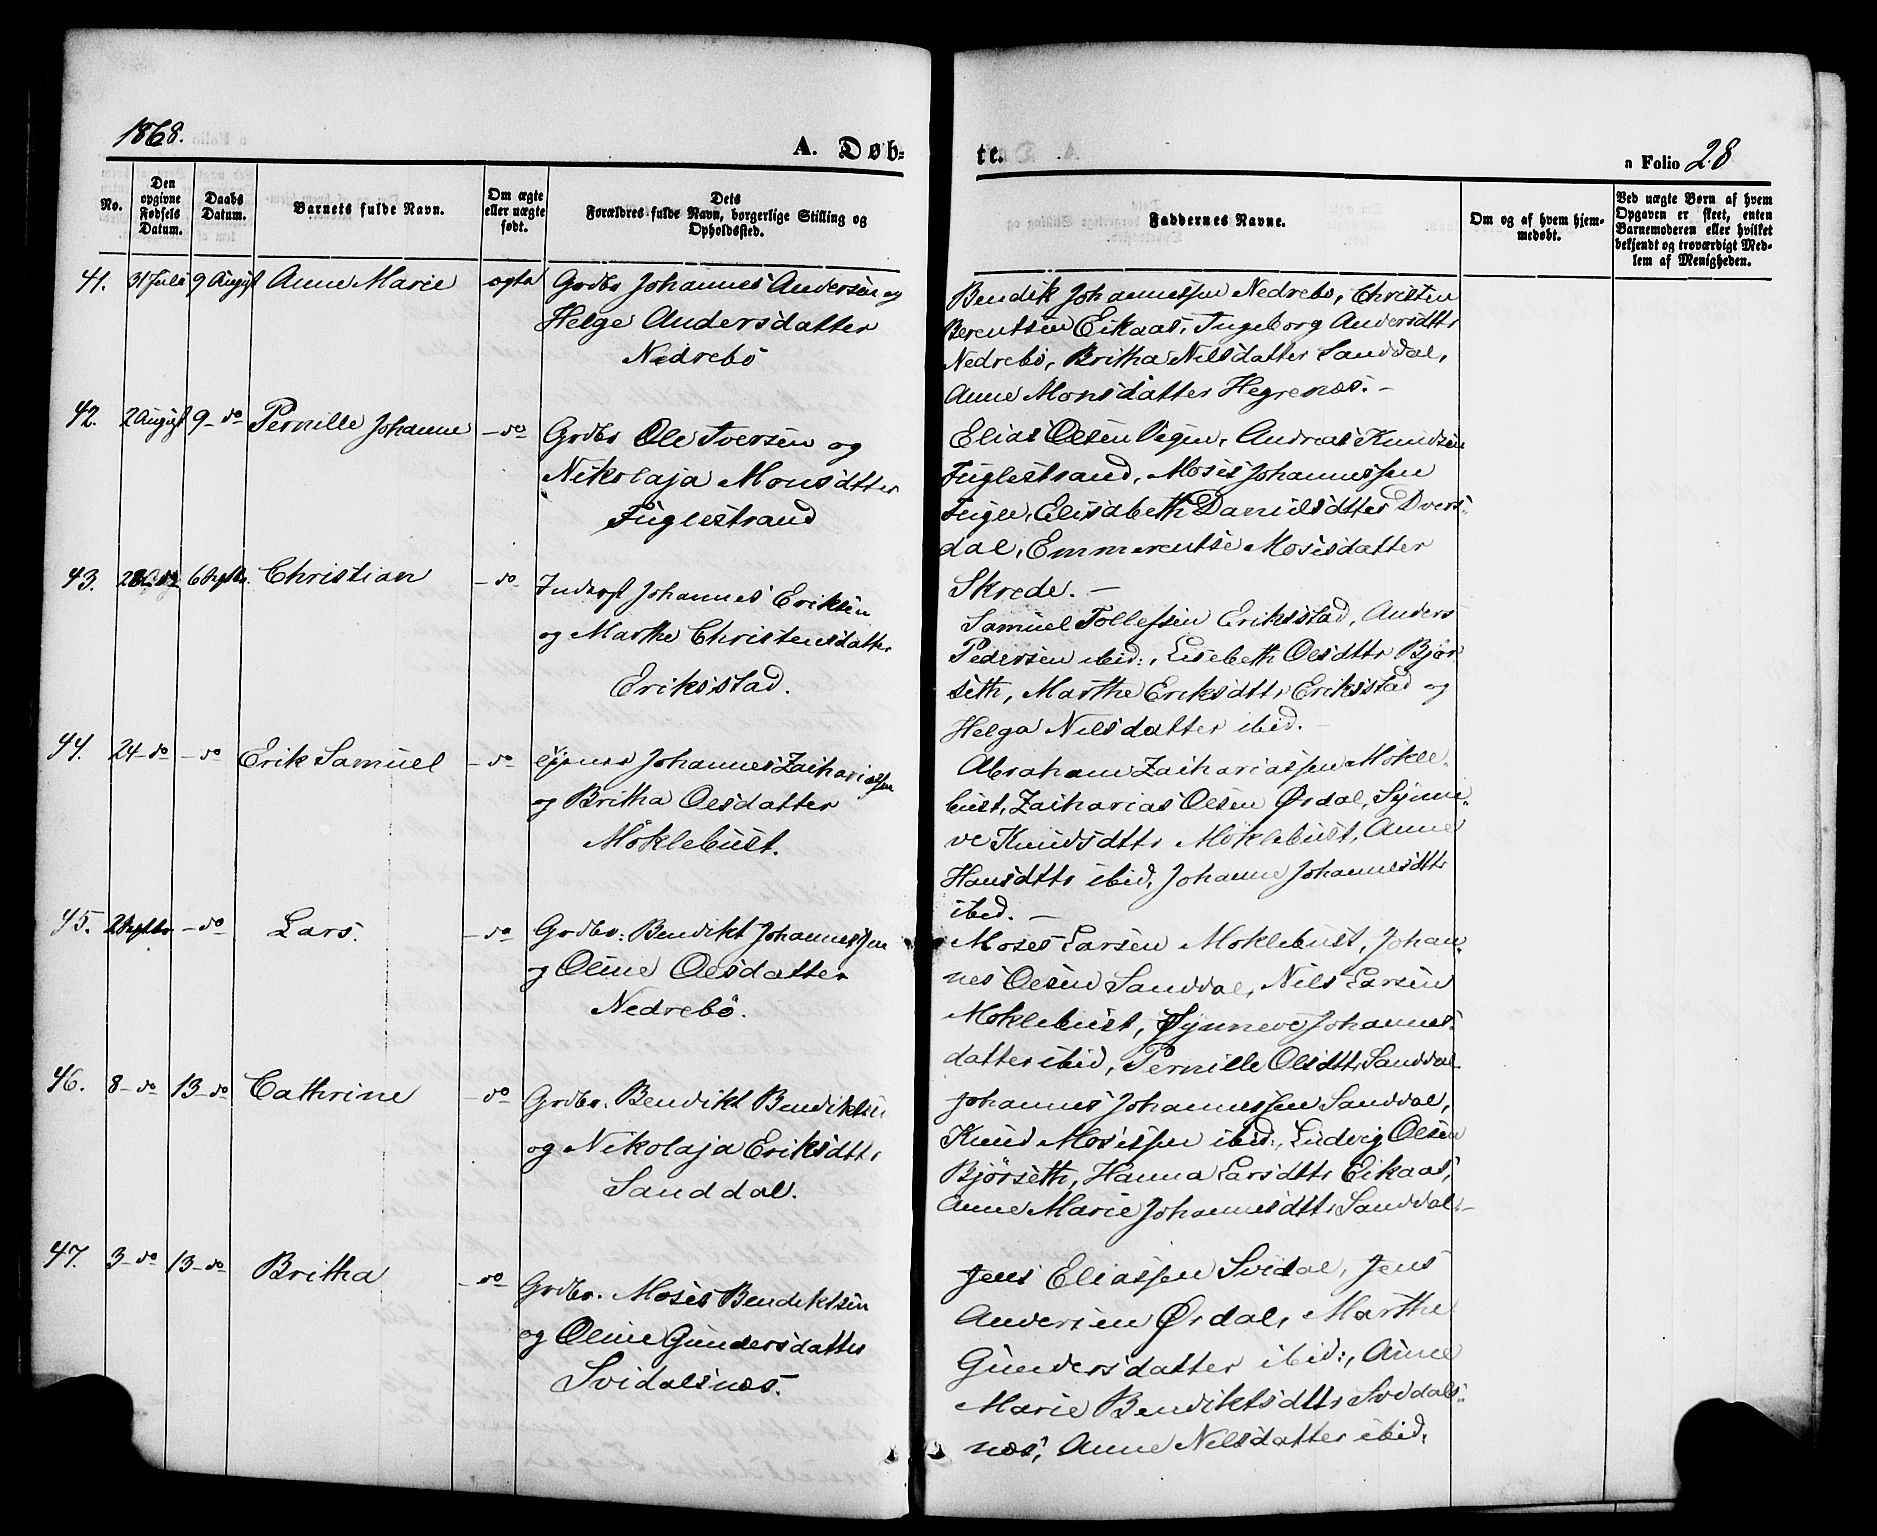 1868.
A. Døb-
te.
a Folio 28
No.
Den opgivne Fødsels Datum.
Daabs Datum.
Barnets fulde Navn.
Om ægte eller uægte født.
Dets Forældres fulde Navn, borgerlige Stilling og Opholdssted.
Faddernes Navne.
Om og af hvem hjemmedøbt.
Ved uægte Børn af hvem Opgaven er skeet, enten Barnemoderen eller hvilket bekjendt og troværdigt Medlem af Menigheden.
41. 31 Juli 9 August Anne Marie ægte Grdbr Johannes Andersen og
Helge Andersdatter
Nedrebö
Bendik Johannessen Nedrebö, Christen
Berentsen Eikaas, Ingeborg Andersdtr
Nedrebö, Britha Nilsdatter Sanddal,
Anne Monsdatter Hegrenæs. –
42. 2 August 9 – do Pernille Johanne – do Grdbr Ole Iversen og
Nikolaja Monsdtter
Fuglestrand
Elias Olsen Vigen, Andreas Knudsen
Fuglestrand, Moses Johannessen
Fugle, Elisabeth Danielsdtter Dvers-
dal, Emmerentse Mosesdatter
Skrede. –
43. 6 Septbr. Christian – do Inderst Johannes Eriksen
og Marthe Christensdatter
Eriksstad.
Samuel Tollefsen Eriksstad, Anders
Pedersen ibid:, Lisebeth Olsdtr Bjør-
seth, Marthe Eriksdtr Eriksstad og
Helga Nilsdatter ibid. –
44. 24 – do – do Erik Samuel – do Johannes Zachariassen
og Britha Olsdatter
Möklebust.
Abraham Zachariassen Mökle-
bust, Zacharias Olsen Ørdal, Synne-
ve Knudsdtr Möklebust, Anne
Hansdtr ibid, Johanne Johannesdtr
ibid. –
45. 2 Septbr – do Lars. – do Grdbr: Bendikt Johannessen
og Oline Olsdatter
Nedrebö.
Moses Larsen Moklebust, Johan-
nes Olsen Sanddal, Nils Larsen
Moklebust, Synneve Johannes-
datter ibid, Pernille Olsdtr Sanddal
46. 8 – do 13 – do Cathrine – do Grdbr. Bendikt Bendiktsen
og Nikolaja Eriksdtr
Sanddal.
Johannes Johannessen Sanddal,
Knud Mosessen ibid:, Ludvig Olsen
Bjørseth, Hanna Larsdtr Eikaas,
Anne Marie Johannesdtr Sanddal. –
47. 3 – do 13 – do Britha – do Grdbr. Moses Bendiktsen
og Oline Gundersdatter
Svidalsnæs.
Jens Eliassen Svidal, Jens
Andersen Ørdal, Marthe
Gundersdatter ibid:, Anne
Marie Bendiktsdtr Svidals-
næs, Anne Nilsdatter ibid.